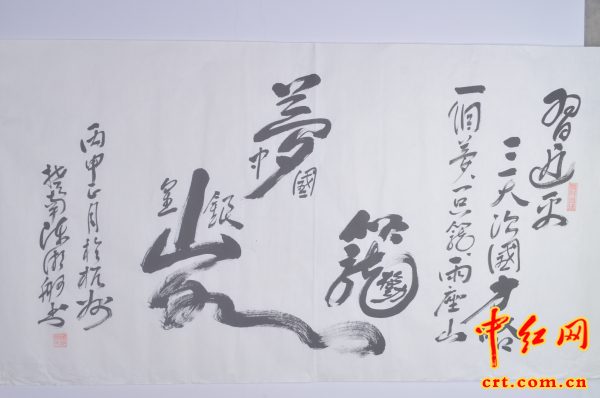 習近平
三大治國方略
一個夢、一只籠、兩座山
籠
權
夢
中國
金山銀
丙申正月於杭州
楚南陳湘書
中红网
crt.com.cn